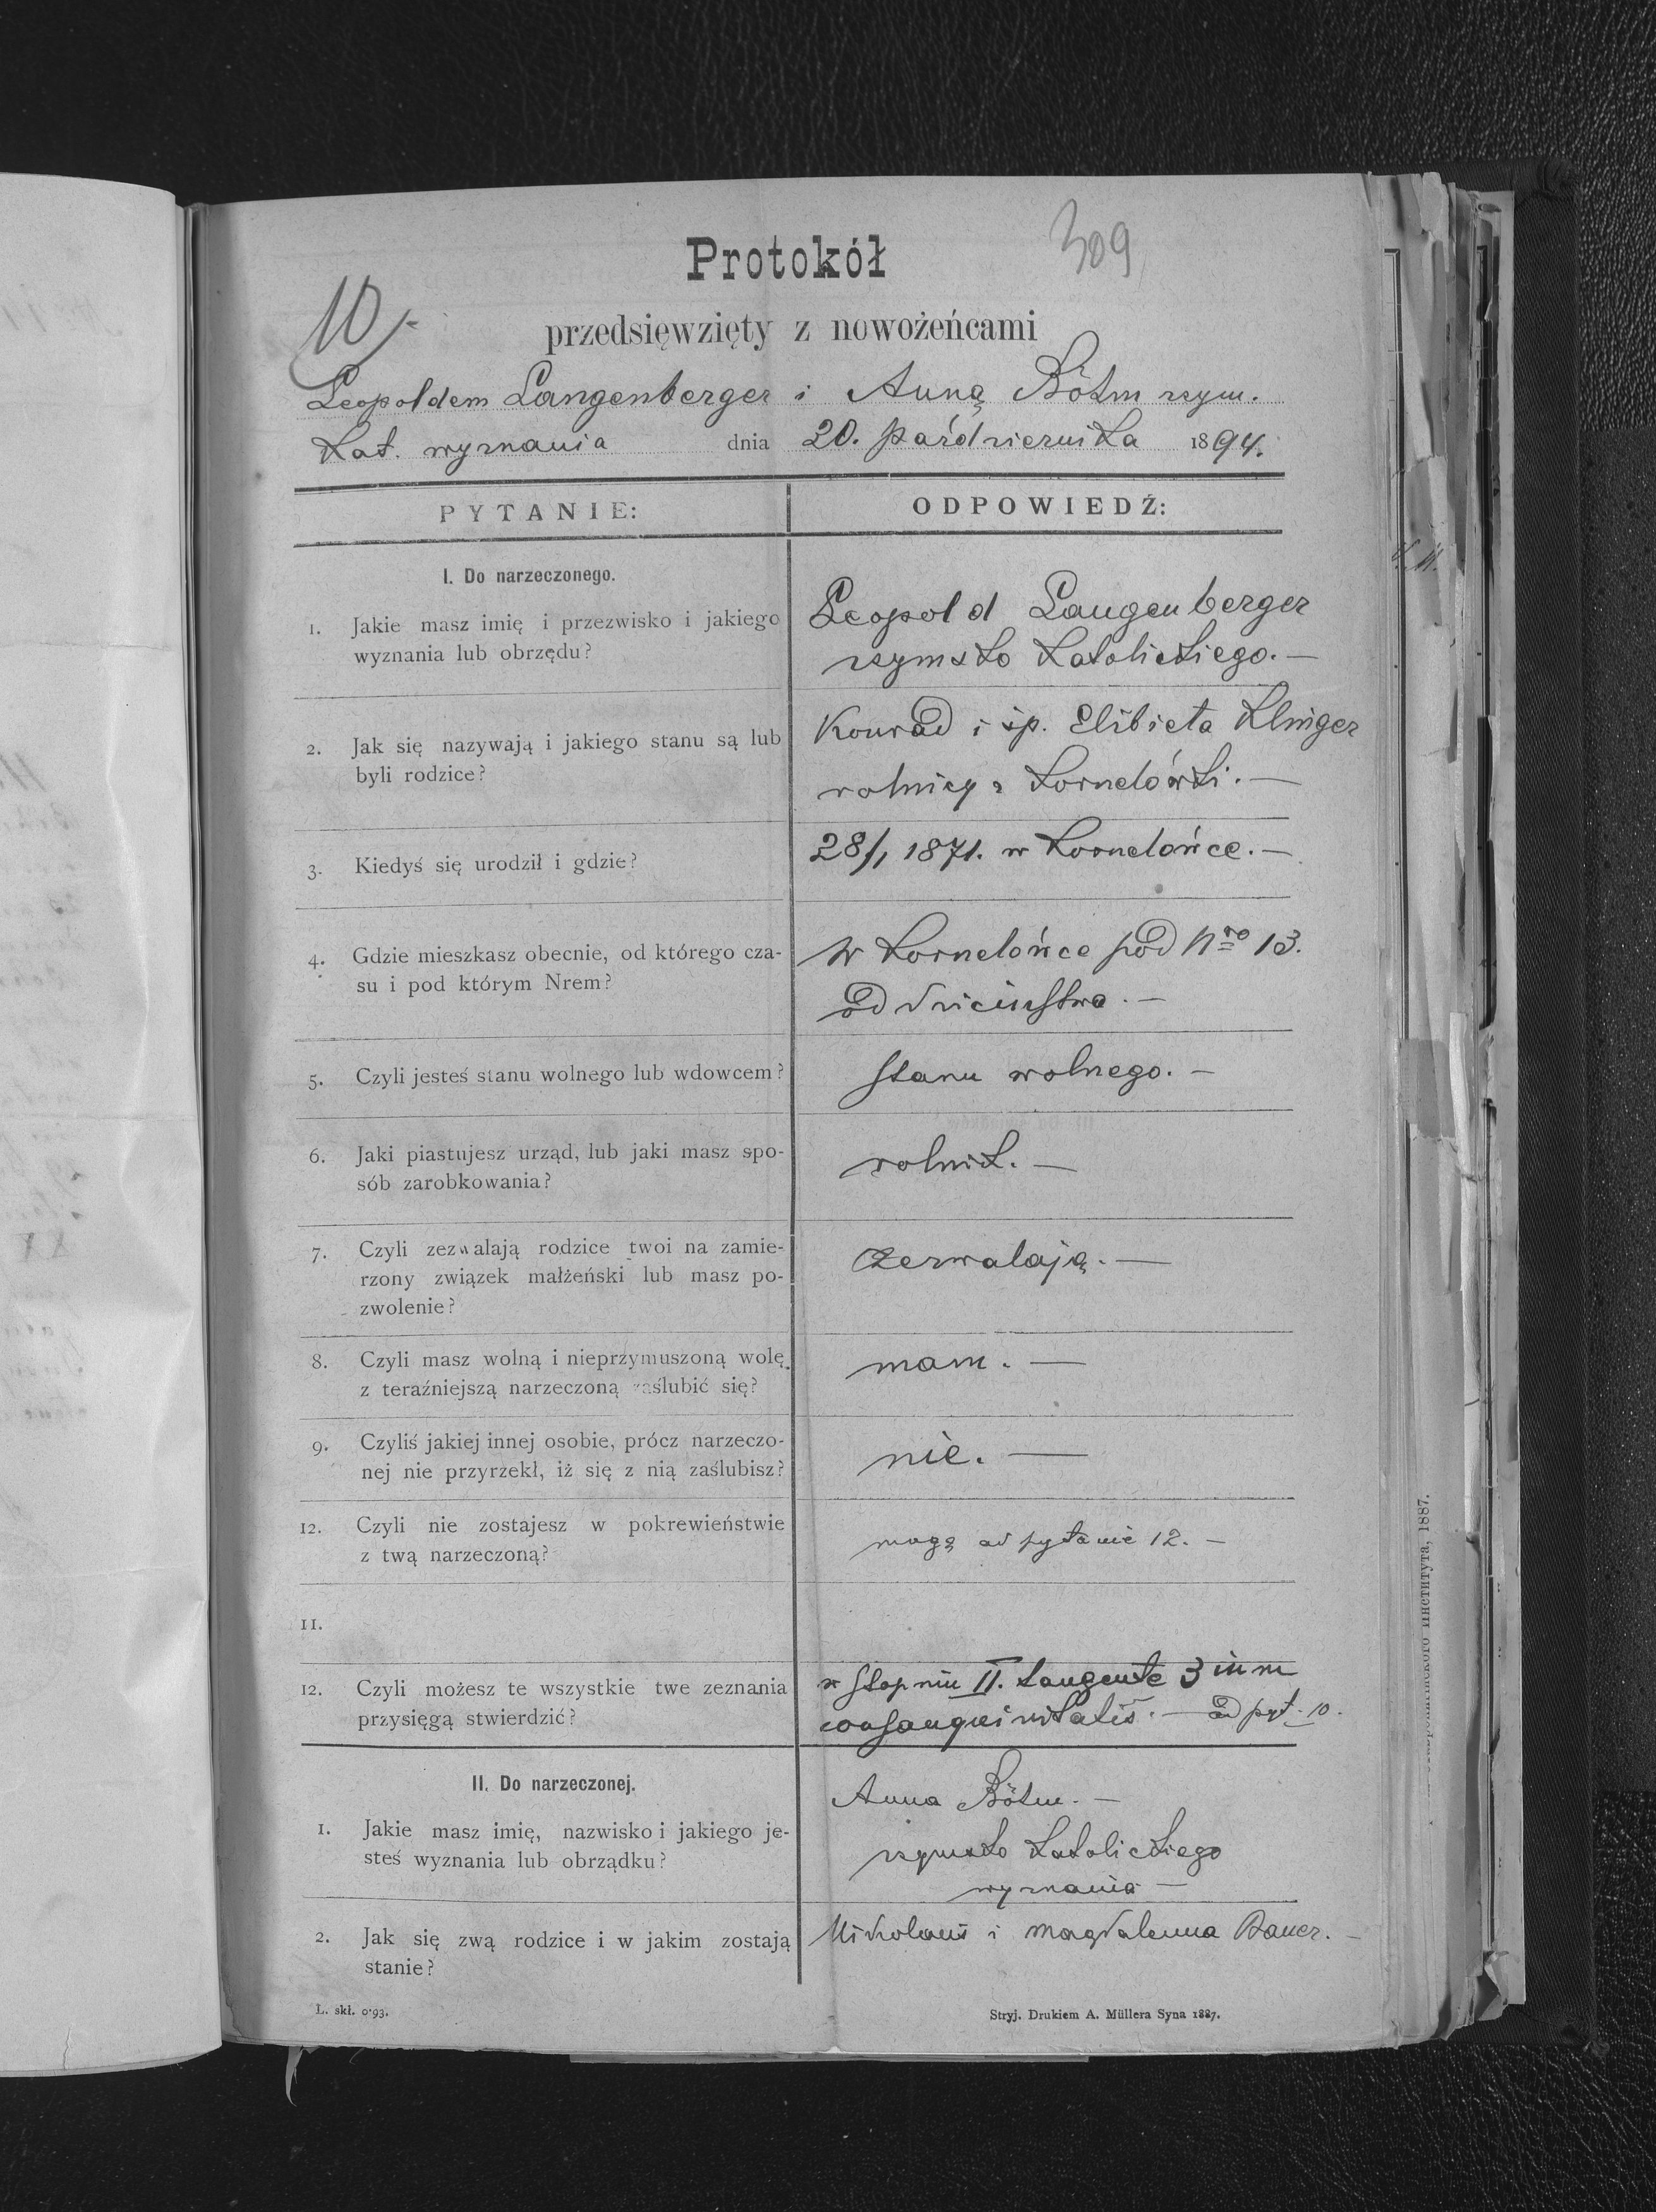 Protokół
309
10.
przedsięwzięty z nowożeńcami
Leopoldem Langenberger i Anną Böhm rzym.
kat. wyznania dnia 20. października 1894.
PYTANIE:
ODPOWIEDŹ:
I. Do narzeczonego.
1. Jakie masz imię i przezwisko i jakiego
wyznania lub obrzędu?
Leopold Langenberger
rzymsko katolickiego. —
2. Jak się nazywają i jakiego stanu są lub
byli rodzice?
Konrad i śp. Elżbieta Klinger
rolnicy z Kornelówki. —
3. Kiedyś się urodził i gdzie?
28/1 1871. w Kornelówce. —
4. Gdzie mieszkasz obecnie, od którego cza-
su i pod którym Nrem?
w Kornelówce pod Nro 13.
od dzieciństwa. —
5. Czyli jesteś stanu wolnego lub wdowcem?
stanu wolnego. —
6. Jaki piastujesz urząd, lub jaki masz spo-
sób zarobkowania?
rolnik. —
7. Czyli zezwalają rodzice twoi na zamie-
rzony związek małżeński lub masz po-
zwolenie?
zezwalają. —
8. Czyli masz wolną i nieprzymuszoną wolę
z teraźniejszą narzeczoną zaślubić się?
mam. —
9. Czyliś jakiej innej osobie, prócz narzeczo-
nej nie przyrzekł, iż się z nią zaślubisz?
nie. —
12. Czyli nie zostajesz w pokrewieństwie
z twą narzeczoną?
mogę ad pytanie 12. —
11.
12. Czyli możesz te wszystkie twe zeznania
przysięgą stwierdzić?
w stopniu II. tangente 3ium
consanguinitatis. — ad pyt. 10.
II. Do narzeczonej.
1. Jakie masz imię, nazwisko i jakiego je-
steś wyznania lub obrządku?
Anna Böhm. —
rzymsko katolickiego
wyznania —
2. Jak się zwą rodzice i w jakim zostają
stanie?
Nikolaus i Magdalenna Bauer. —
L. skł. 0·93.
Stryj. Drukiem A. Müllera Syna 1887.
Института, 1887.